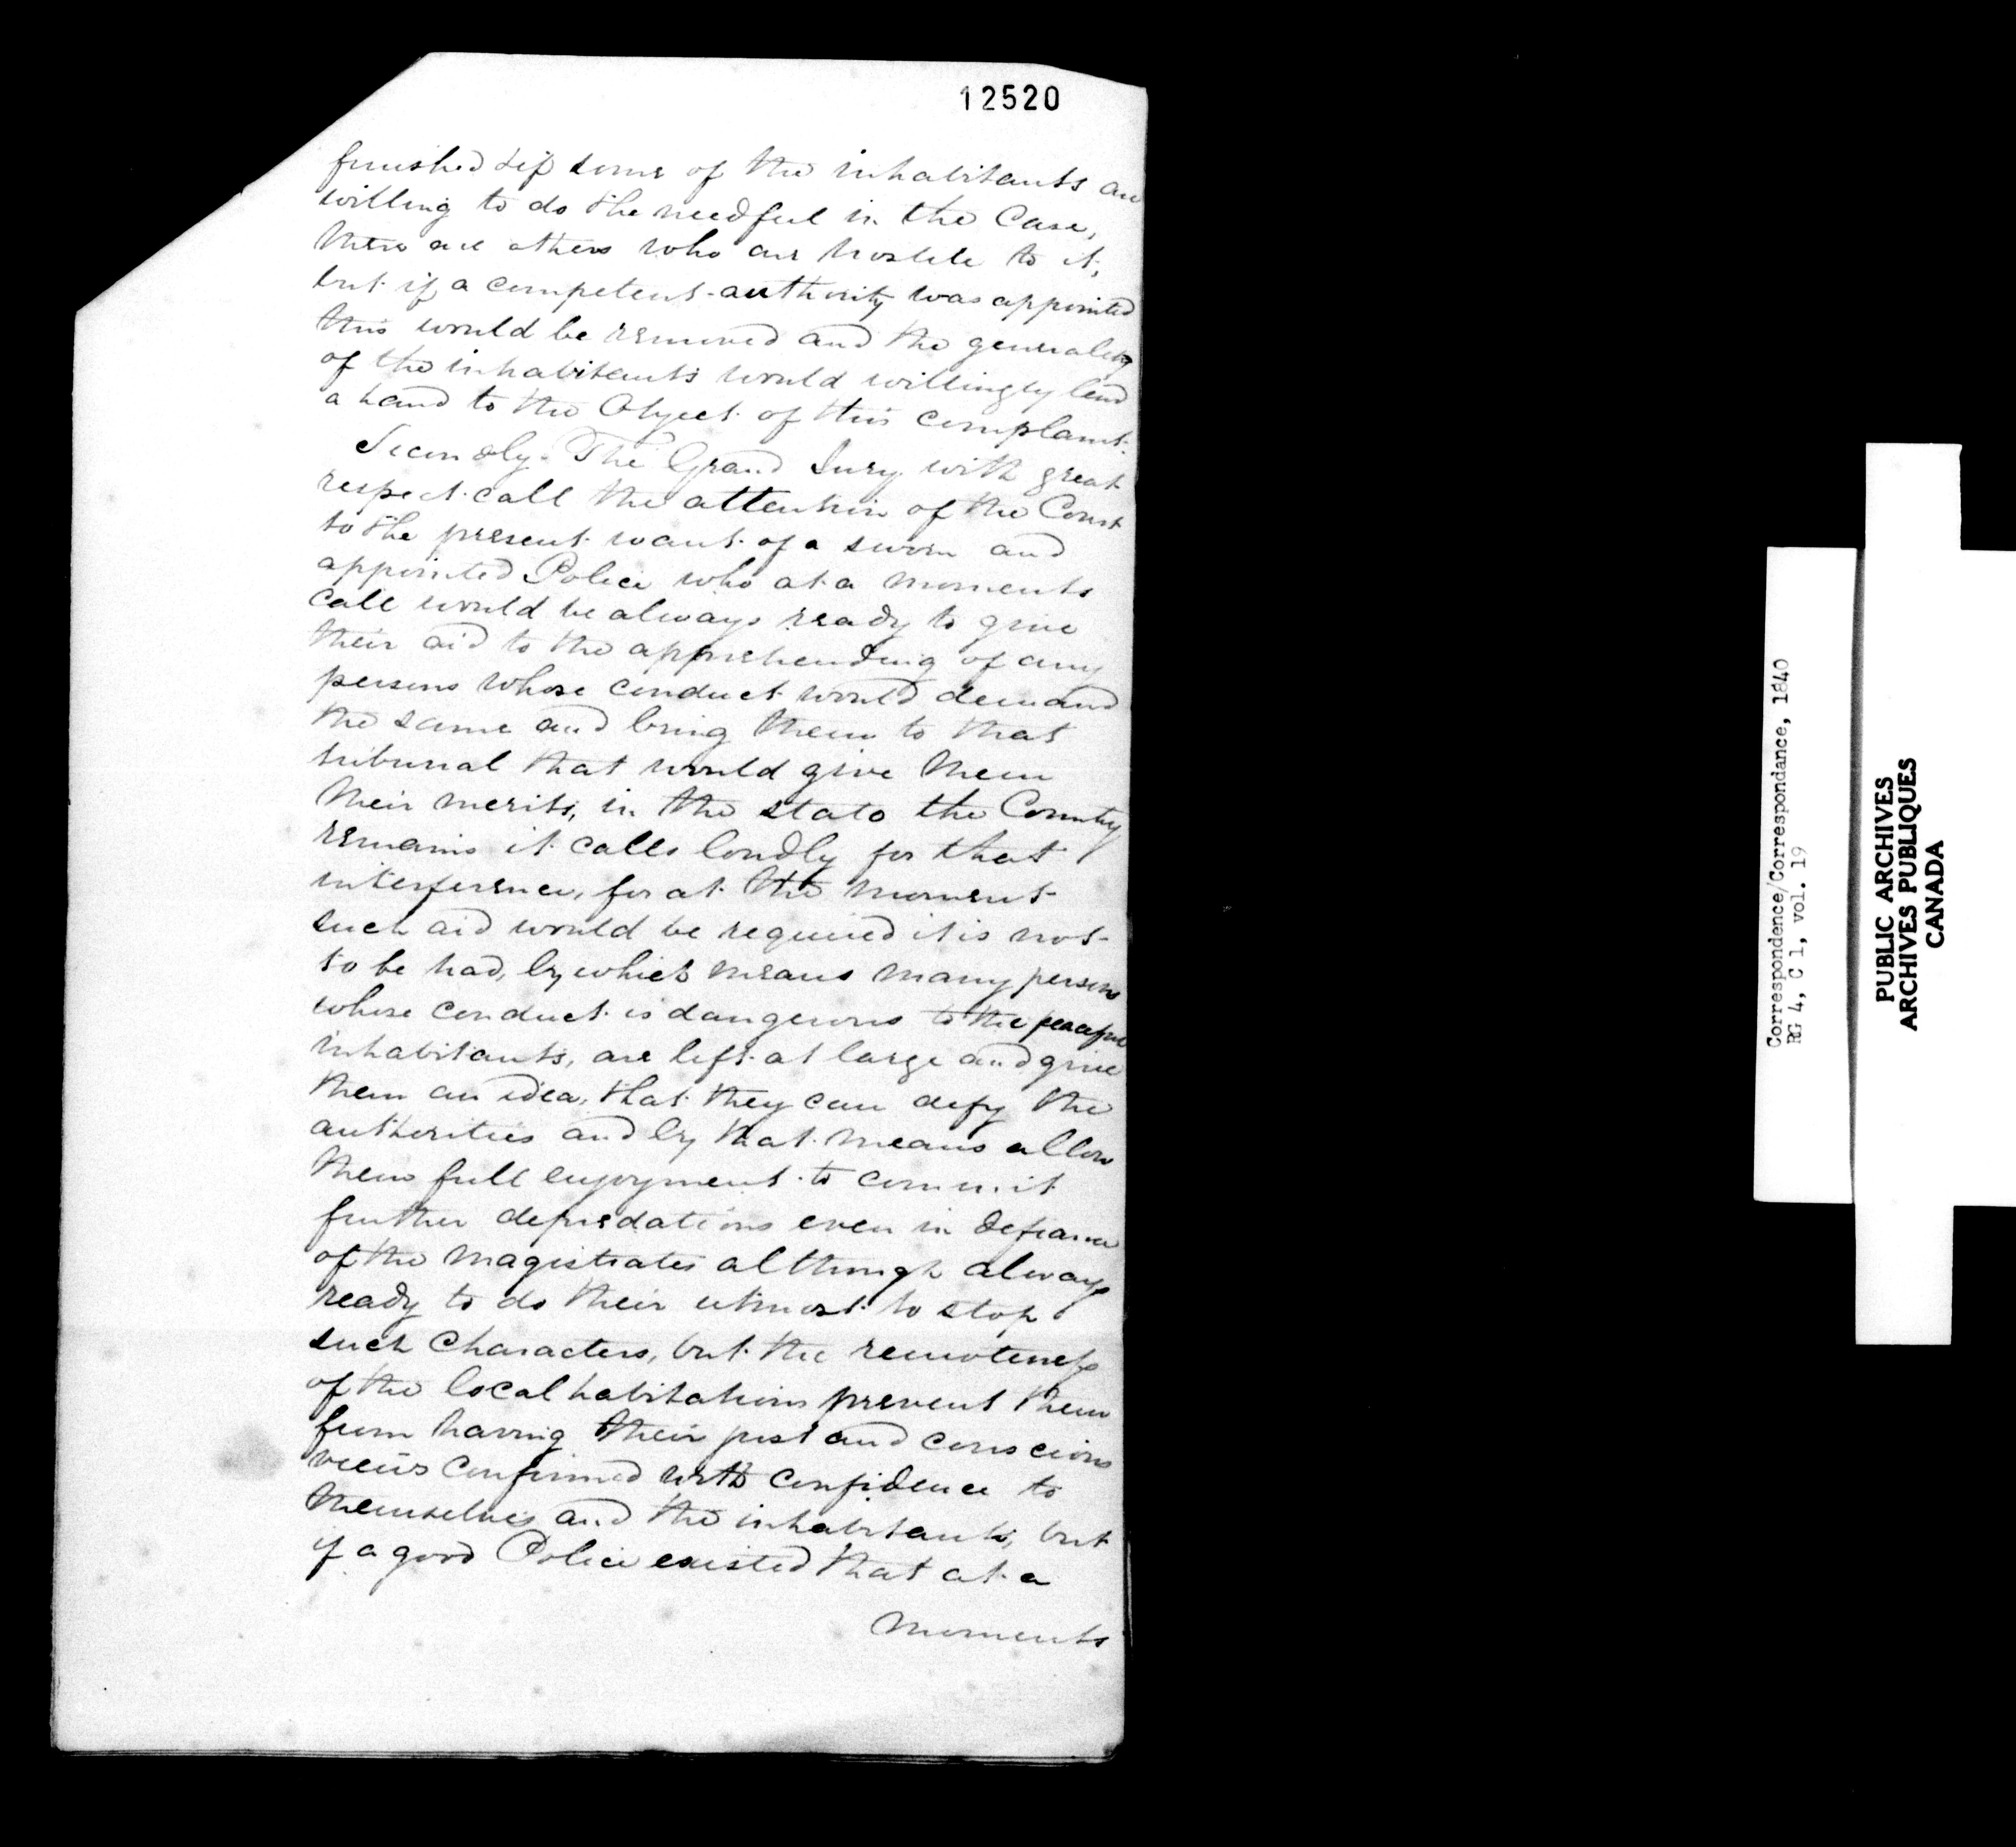 12520
finished if some of the inhabitants are
willing to do the needful in the Case,
there are others who are hostile to it,
but if a competent authority was appointed
this would be removed and the generality
of the inhabitants would willingly lend
a hand to the Object of this complaint.
Secondly. The Grand Jury with great
respect call the attention of the Court
to the present want of a sworn and
appointed Police who at a moments
call would be always ready to give
their aid to the apprehending of any
persons whose conduct would demand
the same and bring them to that
tribunal that would give them
their merits, in the state the County
remains it calls loudly for that
interference, for at the moment
such aid would be required it is not
to be had, by which means many persons
whose conduct is dangerous to the peaceful
inhabitants, are left at large and give
them an idea, that they can defy the
authorities and by that means allow
them full enjoyment to commit
further depredations even in defiance
of the Magistrates although always
ready to do their utmost to stop
such Characters, but the remoteness
of the local habitations prevent them
from having their just and conscious
views confirmed with confidence to
themselves and the inhabitants, but
if a good Police existed that at a
moments
Correspondence/Correspondance, 1840
RG 4, C 1, vol. 19
PUBLIC ARCHIVES
ARCHIVES PUBLIQUES
CANADA